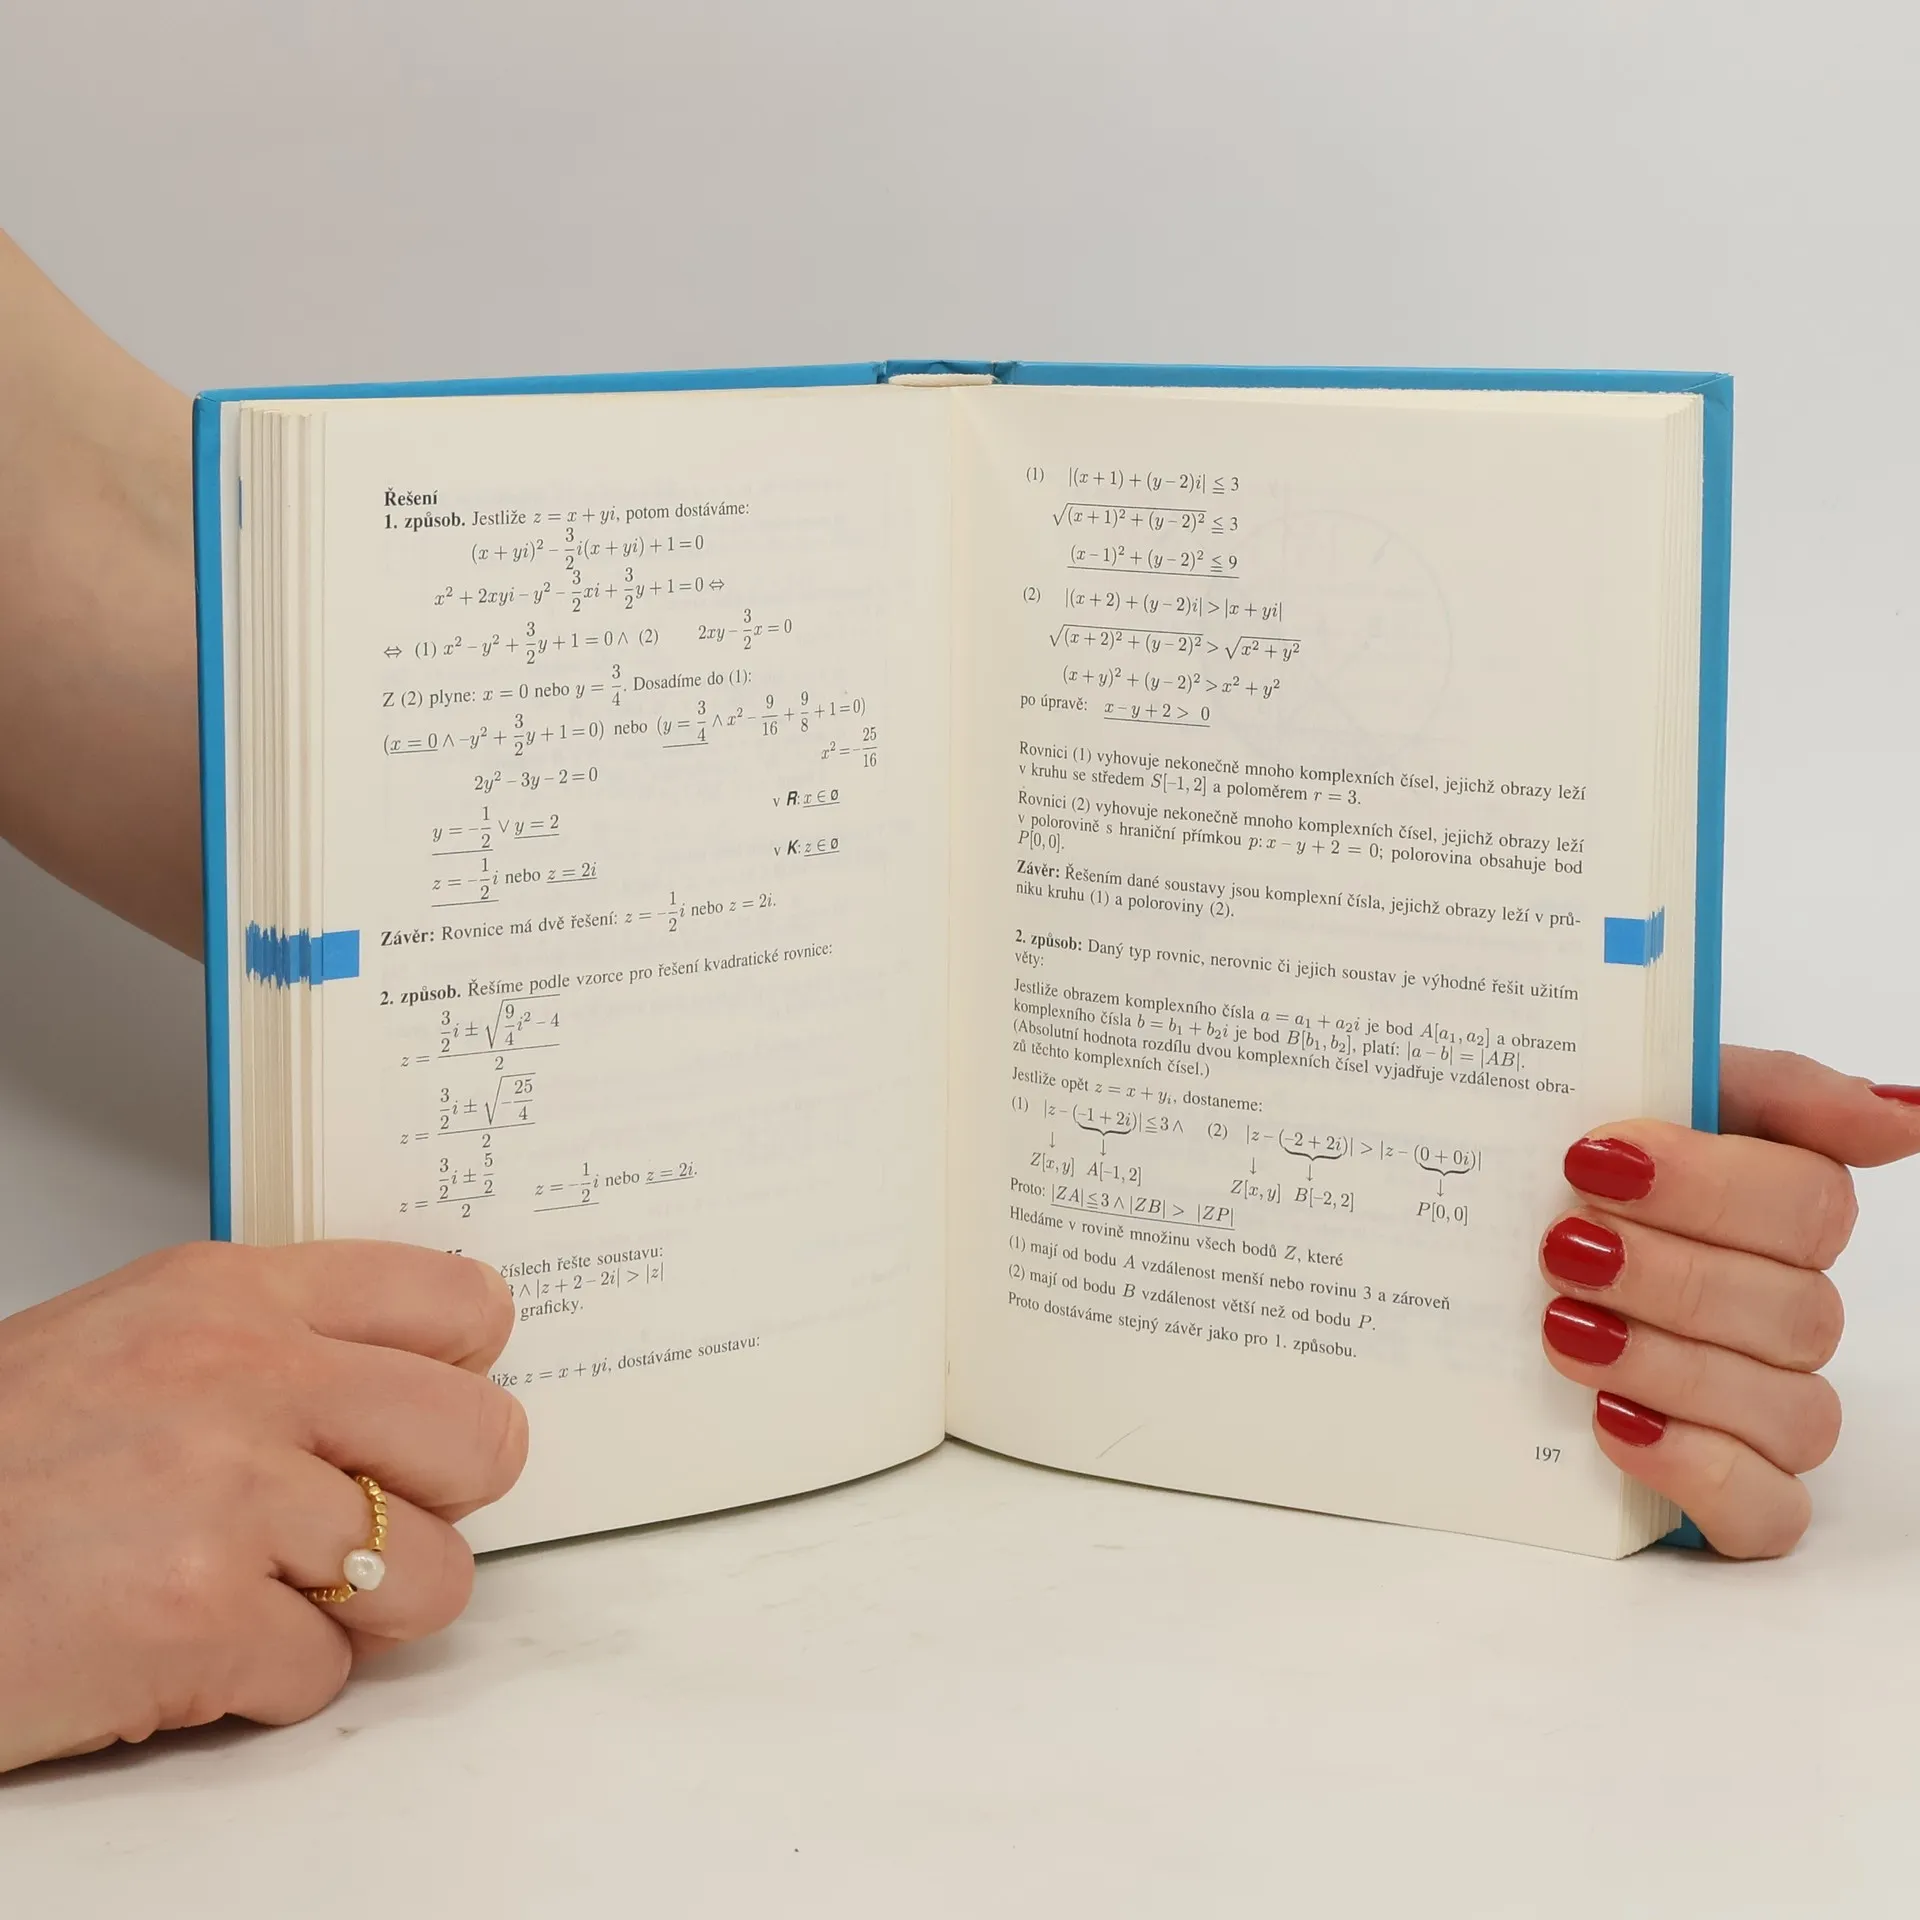 Řešení
1. způsob. Jestliže z = x + yi, potom dostáváme:
(x + yi)² − 3/2 i(x + yi) + 1 = 0
x² + 2xyi − y² − 3/2 xi + 3/2 y + 1 = 0 ⇔
⇔ (1) x² − y² + 3/2 y + 1 = 0 ∧ (2) 2xy − 3/2 x = 0
Z (2) plyne: x = 0 nebo y = 3/4. Dosadíme do (1):
(x = 0 ∧ −y² + 3/2 y + 1 = 0) nebo (y = 3/4 ∧ x² − 9/16 + 9/8 + 1 = 0)
x² = −25/16
2y² − 3y − 2 = 0
v R: x ∈ ∅
y = −1/2 ∨ y = 2
v K: z ∈ ∅
z = −1/2 i nebo z = 2i
Závěr: Rovnice má dvě řešení: z = −1/2 i nebo z = 2i.
2. způsob. Řešíme podle vzorce pro řešení kvadratické rovnice:
z = (3/2 i ± √(9/4 i² − 4))/2
z = (3/2 i ± √(−25/4))/2
z = (3/2 i ± 5/2)/2 z = −1/2 i nebo z = 2i.
číslech řešte soustavu:
3 ∧ |z + 2 − 2i| > |z|
graficky.
z = x + yi, dostáváme soustavu:
(1) |(x + 1) + (y − 2)i| ≦ 3
√((x + 1)² + (y − 2)²) ≦ 3
(x − 1)² + (y − 2)² ≦ 9
(2) |(x + 2) + (y − 2)i| > |x + yi|
√((x + 2)² + (y − 2)²) > √(x² + y²)
(x + y)² + (y − 2)² > x² + y²
po úpravě: x − y + 2 > 0
Rovnici (1) vyhovuje nekonečně mnoho komplexních čísel, jejichž obrazy leží
v kruhu se středem S[−1, 2] a poloměrem r = 3.
Rovnici (2) vyhovuje nekonečně mnoho komplexních čísel, jejichž obrazy leží
v polorovině s hraniční přímkou p: x − y + 2 = 0; polorovina obsahuje bod
P[0, 0].
Závěr: Řešením dané soustavy jsou komplexní čísla, jejichž obrazy leží v prů-
niku kruhu (1) a poloroviny (2).
2. způsob: Daný typ rovnic, nerovnic či jejich soustav je výhodné řešit užitím
věty:
Jestliže obrazem komplexního čísla a = a₁ + a₂i je bod A[a₁, a₂] a obrazem
komplexního čísla b = b₁ + b₂i je bod B[b₁, b₂], platí: |a − b| = |AB|.
(Absolutní hodnota rozdílu dvou komplexních čísel vyjadřuje vzdálenost obra-
zů těchto komplexních čísel.)
Jestliže opět z = x + yᵢ, dostaneme:
(1) |z − (−1 + 2i)| ≦ 3 ∧ (2) |z − (−2 + 2i)| > |z − (0 + 0i)|
↓ ↓ ↓ ↓ ↓
Z[x, y] A[−1, 2] Z[x, y] B[−2, 2] P[0, 0]
Proto: |ZA| ≦ 3 ∧ |ZB| > |ZP|
Hledáme v rovině množinu všech bodů Z, které
(1) mají od bodu A vzdálenost menší nebo rovinu 3 a zároveň
(2) mají od bodu B vzdálenost větší než od bodu P.
Proto dostáváme stejný závěr jako pro 1. způsobu.
197